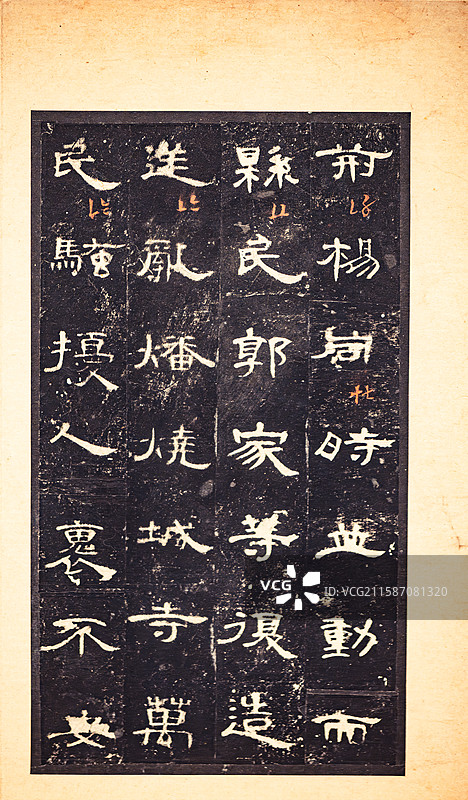 荊楊同時並動而
縣民郭家等復造
逆亂燔燒城寺萬
民騷擾人褱不安
VCG
ID:VCG211587081320